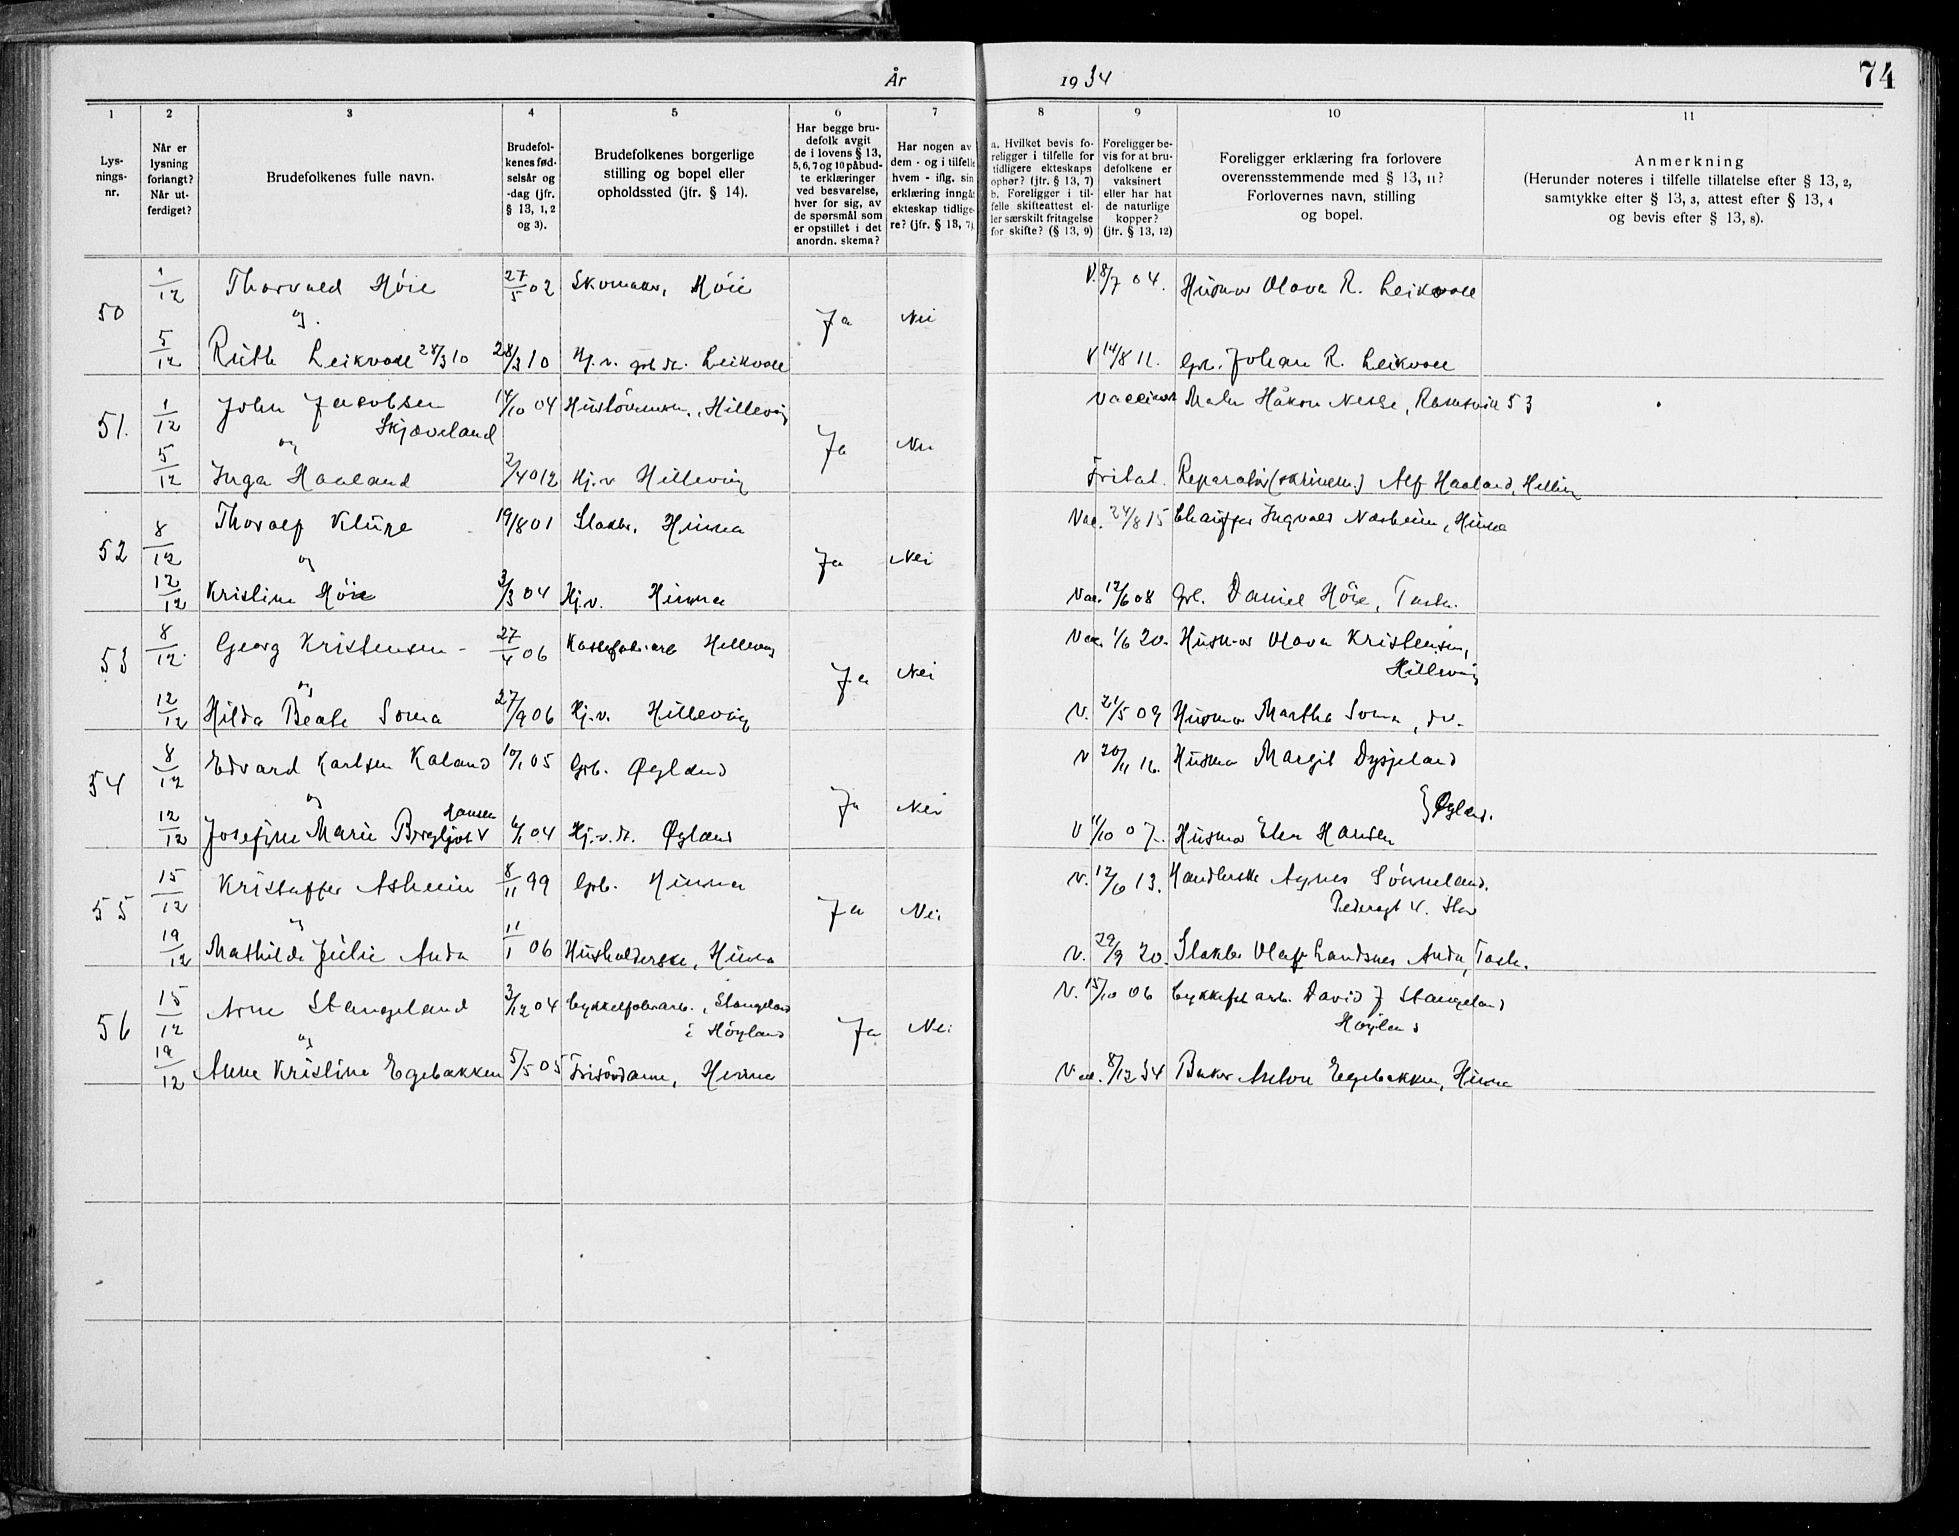 År 1934
74
1 2 3 4 5 6 7 8 9 10 11
Lys-
nings-
nr.
Når er
lysning
forlangt?
Når ut-
ferdiget?
Brudefolkenes fulle navn.
Brudefol-
kenes fød-
selsår og
-dag (jfr.
§ 13, 1, 2
og 3).
Brudefolkenes borgerlige
stilling og bopel eller
opholdssted (jfr. § 14).
Har begge bru-
defolk avgit
de i lovens § 13,
5, 6, 7 og 10 påbud-
te erklæringer
ved besvarelse,
hver for sig, av
de spørsmål som
er opstillet i det
anordn. skema?
Har nogen av
dem - og i tilfelle
hvem - iflg. sin
erklæring inngåt
ekteskap tidlige-
re? (jfr. § 13, 7)
a. Hvilket bevis fo-
religger i tilfelle for
tidligere ekteskaps
ophør? (jfr. § 13, 7)
b. Foreligger i til-
felle skifteattest el-
ler særskilt fritagelse
for skifte? (§ 13, 9)
Foreligger be-
vis for at bru-
defolkene er
vaksinert
eller har hat
de naturlige
kopper?
(jfr. § 13, 12)
Foreligger erklæring fra forlovere
overensstemmende med § 13, 11?
Forlovernes navn, stilling
og bopel.
Anmerkning
(Herunder noteres i tilfelle tillatelse efter § 13, 2,
samtykke efter § 13, 3, attest efter § 13, 4
og bevis efter § 13, 8).
50 1/12 Thorvald Höie 27/5 02 Skomaker, Höie Ja Nei V. 8/7 04. Husmor Olava R. Leikvoll
og
5/12 Ruth Leikvoll 28/3 10 28/3 10 Hj.v. Leikvoll V 14/8 11. Gbr. Johan R. Leikvoll
51. 1/12 John Jacobsen 14/10 04 Hillevåg Ja Nei Maler Håkon Nesse, 53
Skjæveland
og
5/12 Inga Haaland Hj.v Hillevåg Fritat. Reparatör Alf Haaland,
52 8/12 Thoralf Kluge 19/8 01 Slakter, Hinna Ja Nei Vac. 24/8 15 Chauffør Ingvald Næsheim, Hinna
og
12/12 Kristine Höie 3/3 04 Hj.v. Hinna Vac. 12/6 08 Gbr. Daniel Höie, Tasta.
53 8/12 Georg Kristensen 27/4 06 Hillevåg Ja Nei Vac. 1/6 20. Husmor Olava Kristensen,
Hillevåg
og
12/12 Hilda Beate Soma 27/9 06 Hj.v. Hillevåg V. 21/5 09 Husmor Martha Soma, do.
54 8/12 Edvard Karlsen Kaland 10/1 05 Gbr. Øgland Ja Nei V 20/11 16. Husmor Margit Dysjeland
og } Øgland.
Hansen
12/12 Josefine Marie Bergljot v 6/1 04 Hj.v. Øgland V 11/10 07. Husmor Elen Hansen
55 15/12 Kristoffer Asheim 8/11 99 Gbr. Hinna Ja Nei V. 12/6 13. Handlerske Agnes Sönneland.
Pedersgt 4. Stav
og
19/12 Mathilde Julie Anda 11/1 06 Husholderske, Hinna V. 29/9 20. Slakter Olaf Landsnes Anda, Tasta.
56 15/12 Arne Stangeland 3/12 04 Cykkelfabrarb., Stangeland Ja Nei V. 15/10 06 Cykkelfabarb. David J Stangeland
i Höyland Höyland
og
19/12 Anne Kristine Egebakken 5/5 05 Frisördame, Hinna Vac. 8/12 34 Baker Anton Egebakken, Hinna